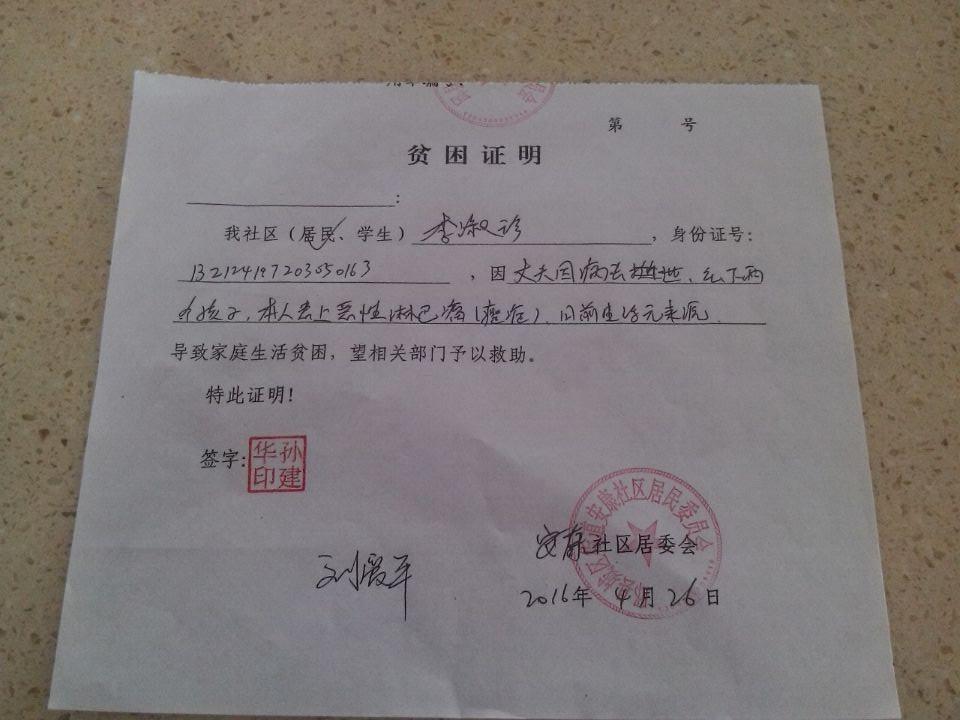 第 号
贫困证明
:
我社区（居民、学生）李淑珍，身份证号:
132124197203050163，因丈夫因病去世、留下两
个孩子，本人患上恶性淋巴瘤（癌症），目前生活无来源
导致家庭生活贫困，望相关部门予以救助。
特此证明!
签字: 孙建华印
安康社区居民委员会
安康社区居委会
刘爱平
2016年4月26日